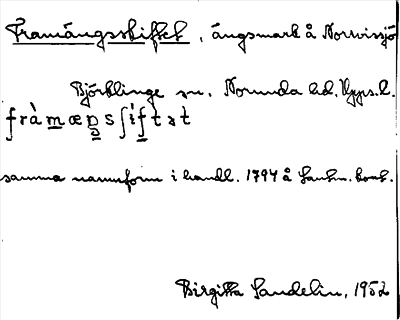 Framängsskiftet, ängsmark å Norrvissjö
Björklinge sn, Norunda hd, Upps. l.
fràmæŋsʃìftət
samma namnform i handl. 1794 å Lantm. kont.
Birgitta Sandelin, 1952